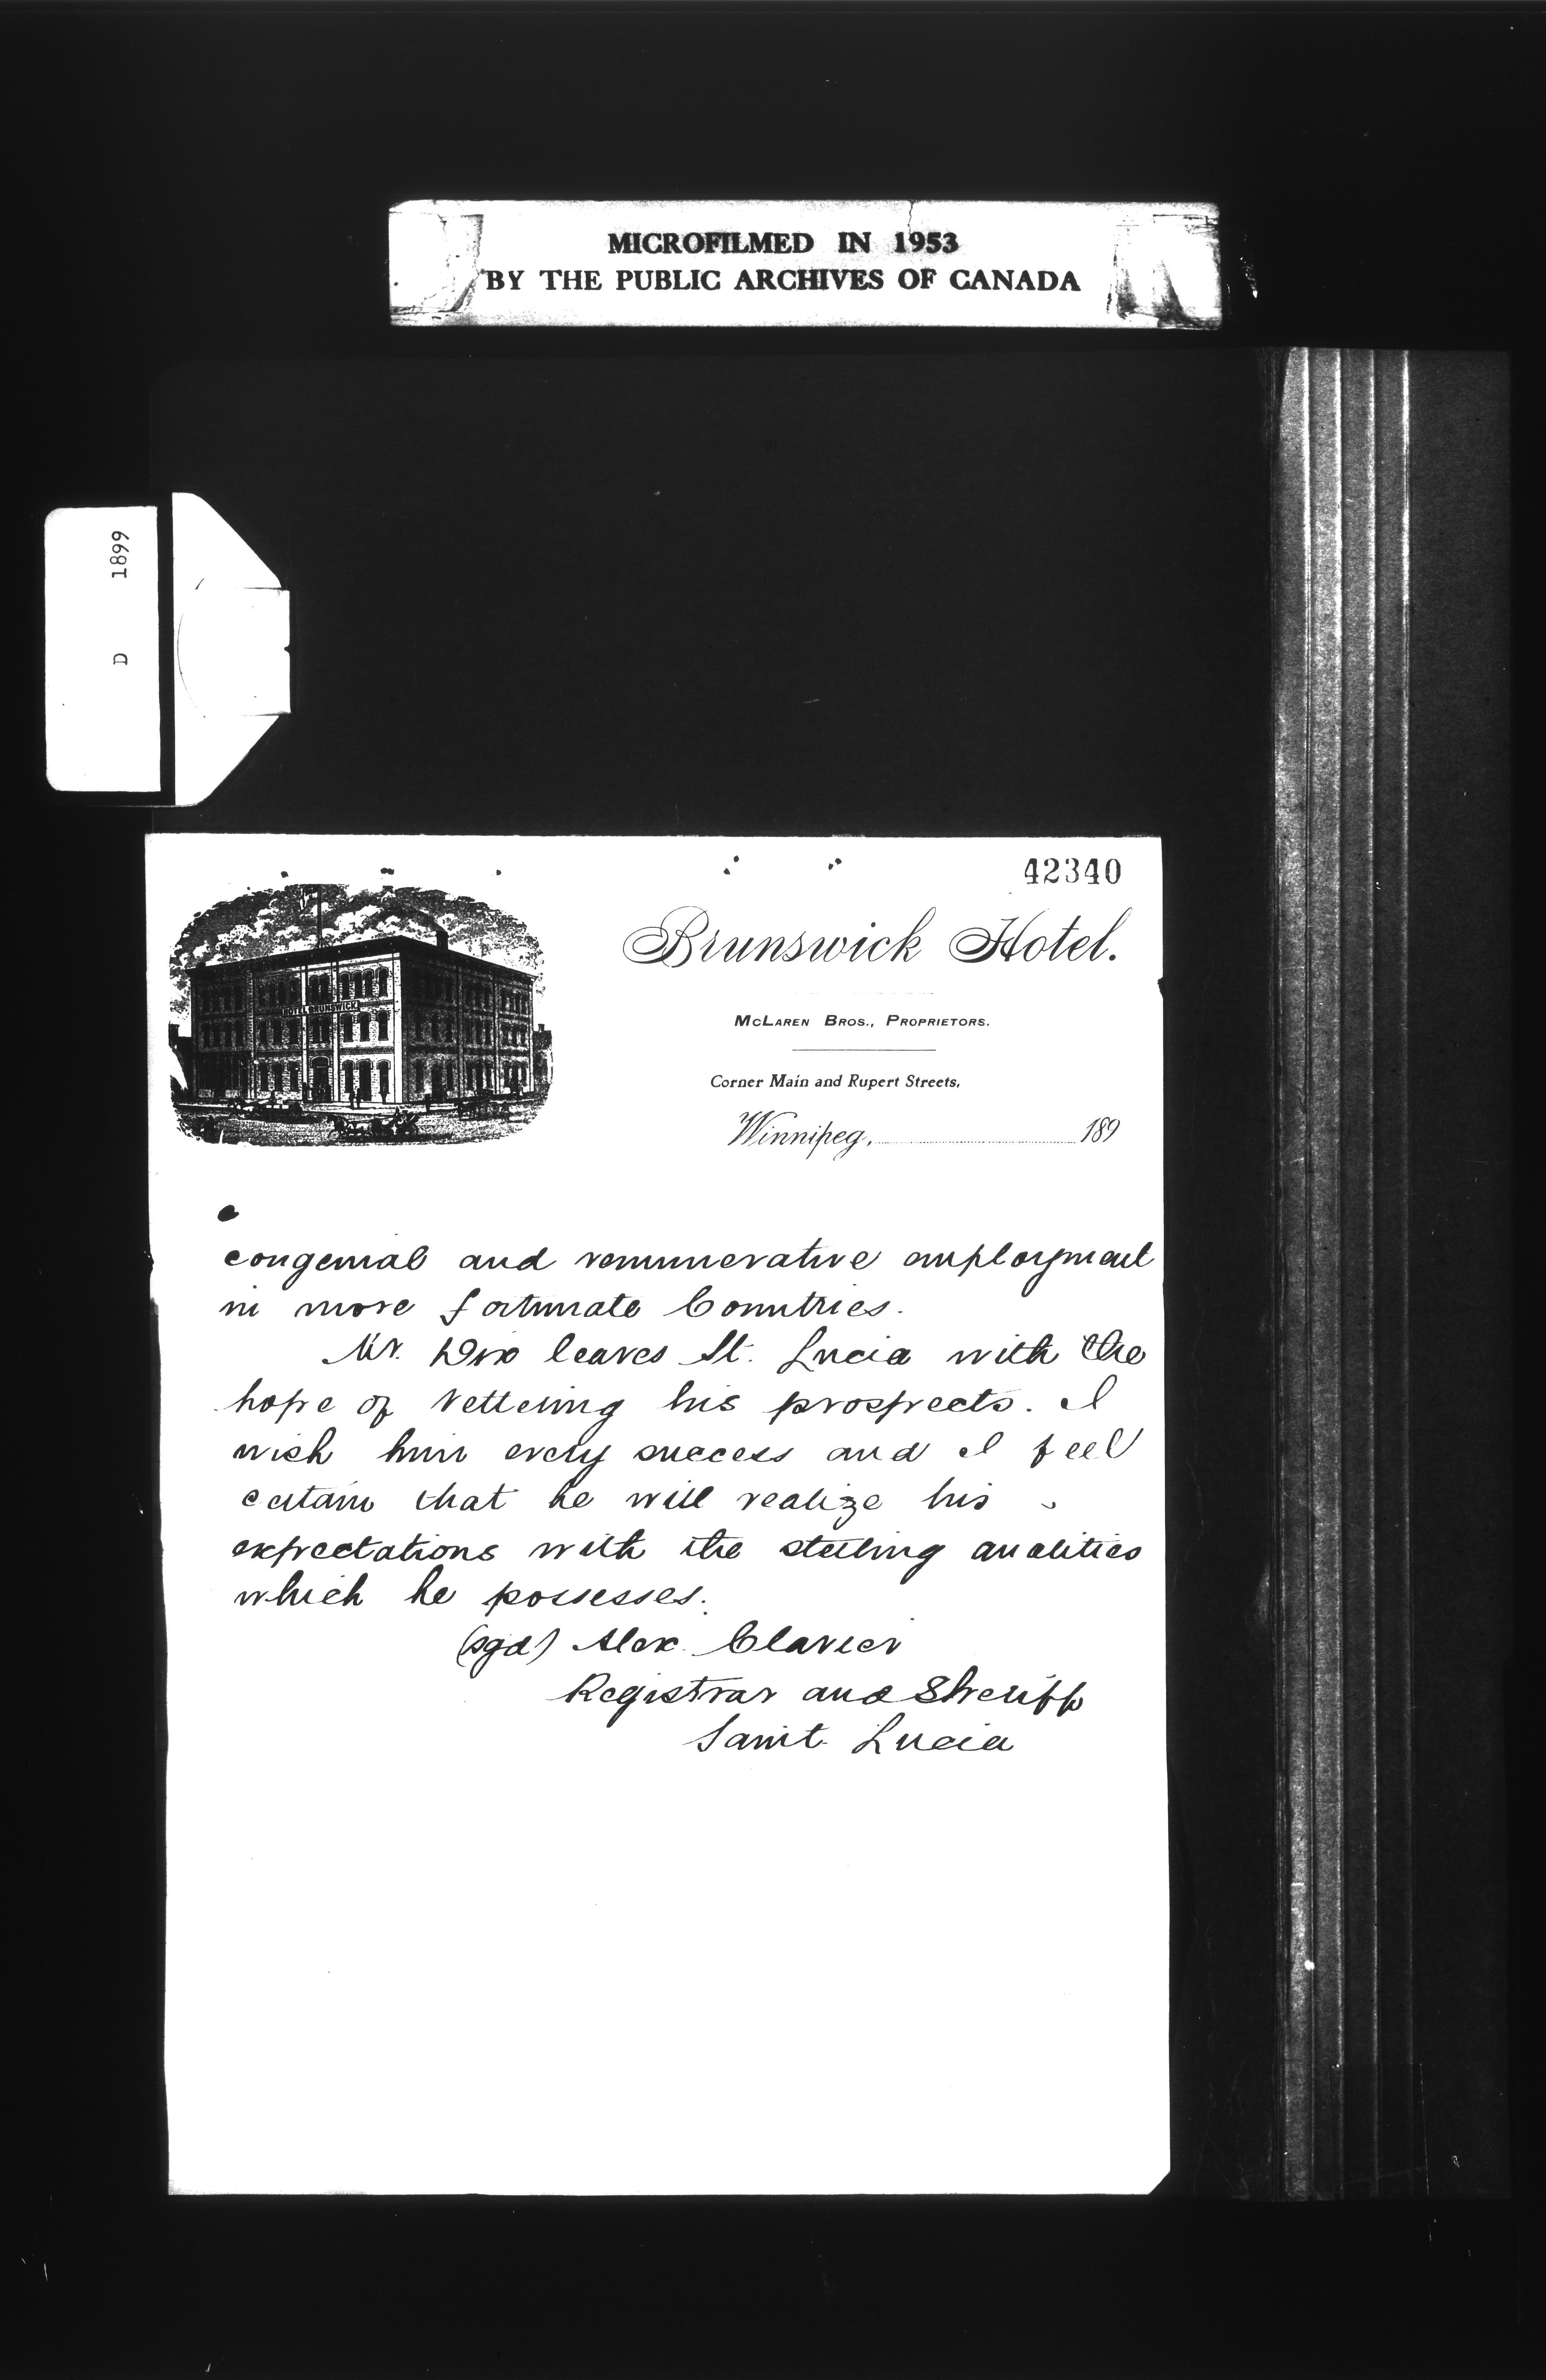 MICROFILMED IN 1953
BY THE PUBLIC ARCHIVES OF CANADA
D 1899
42340
HOTEL BRUNSWICK
Brunswick Hotel.
McLaren Bros., Proprietors.
Corner Main and Rupert Streets,
Winnipeg, 189
congenial and remunerative employment
in more fortunate Countries.
Mr. Dix leaves St. Lucia with the
hope of bettering his prospects. I
wish him every success and I feel
certain that he will realize his
expectations with the sterling qualities
which he possesses.
(sgd) Alex. Clavier
Registrar and Sheriff
Saint Lucia